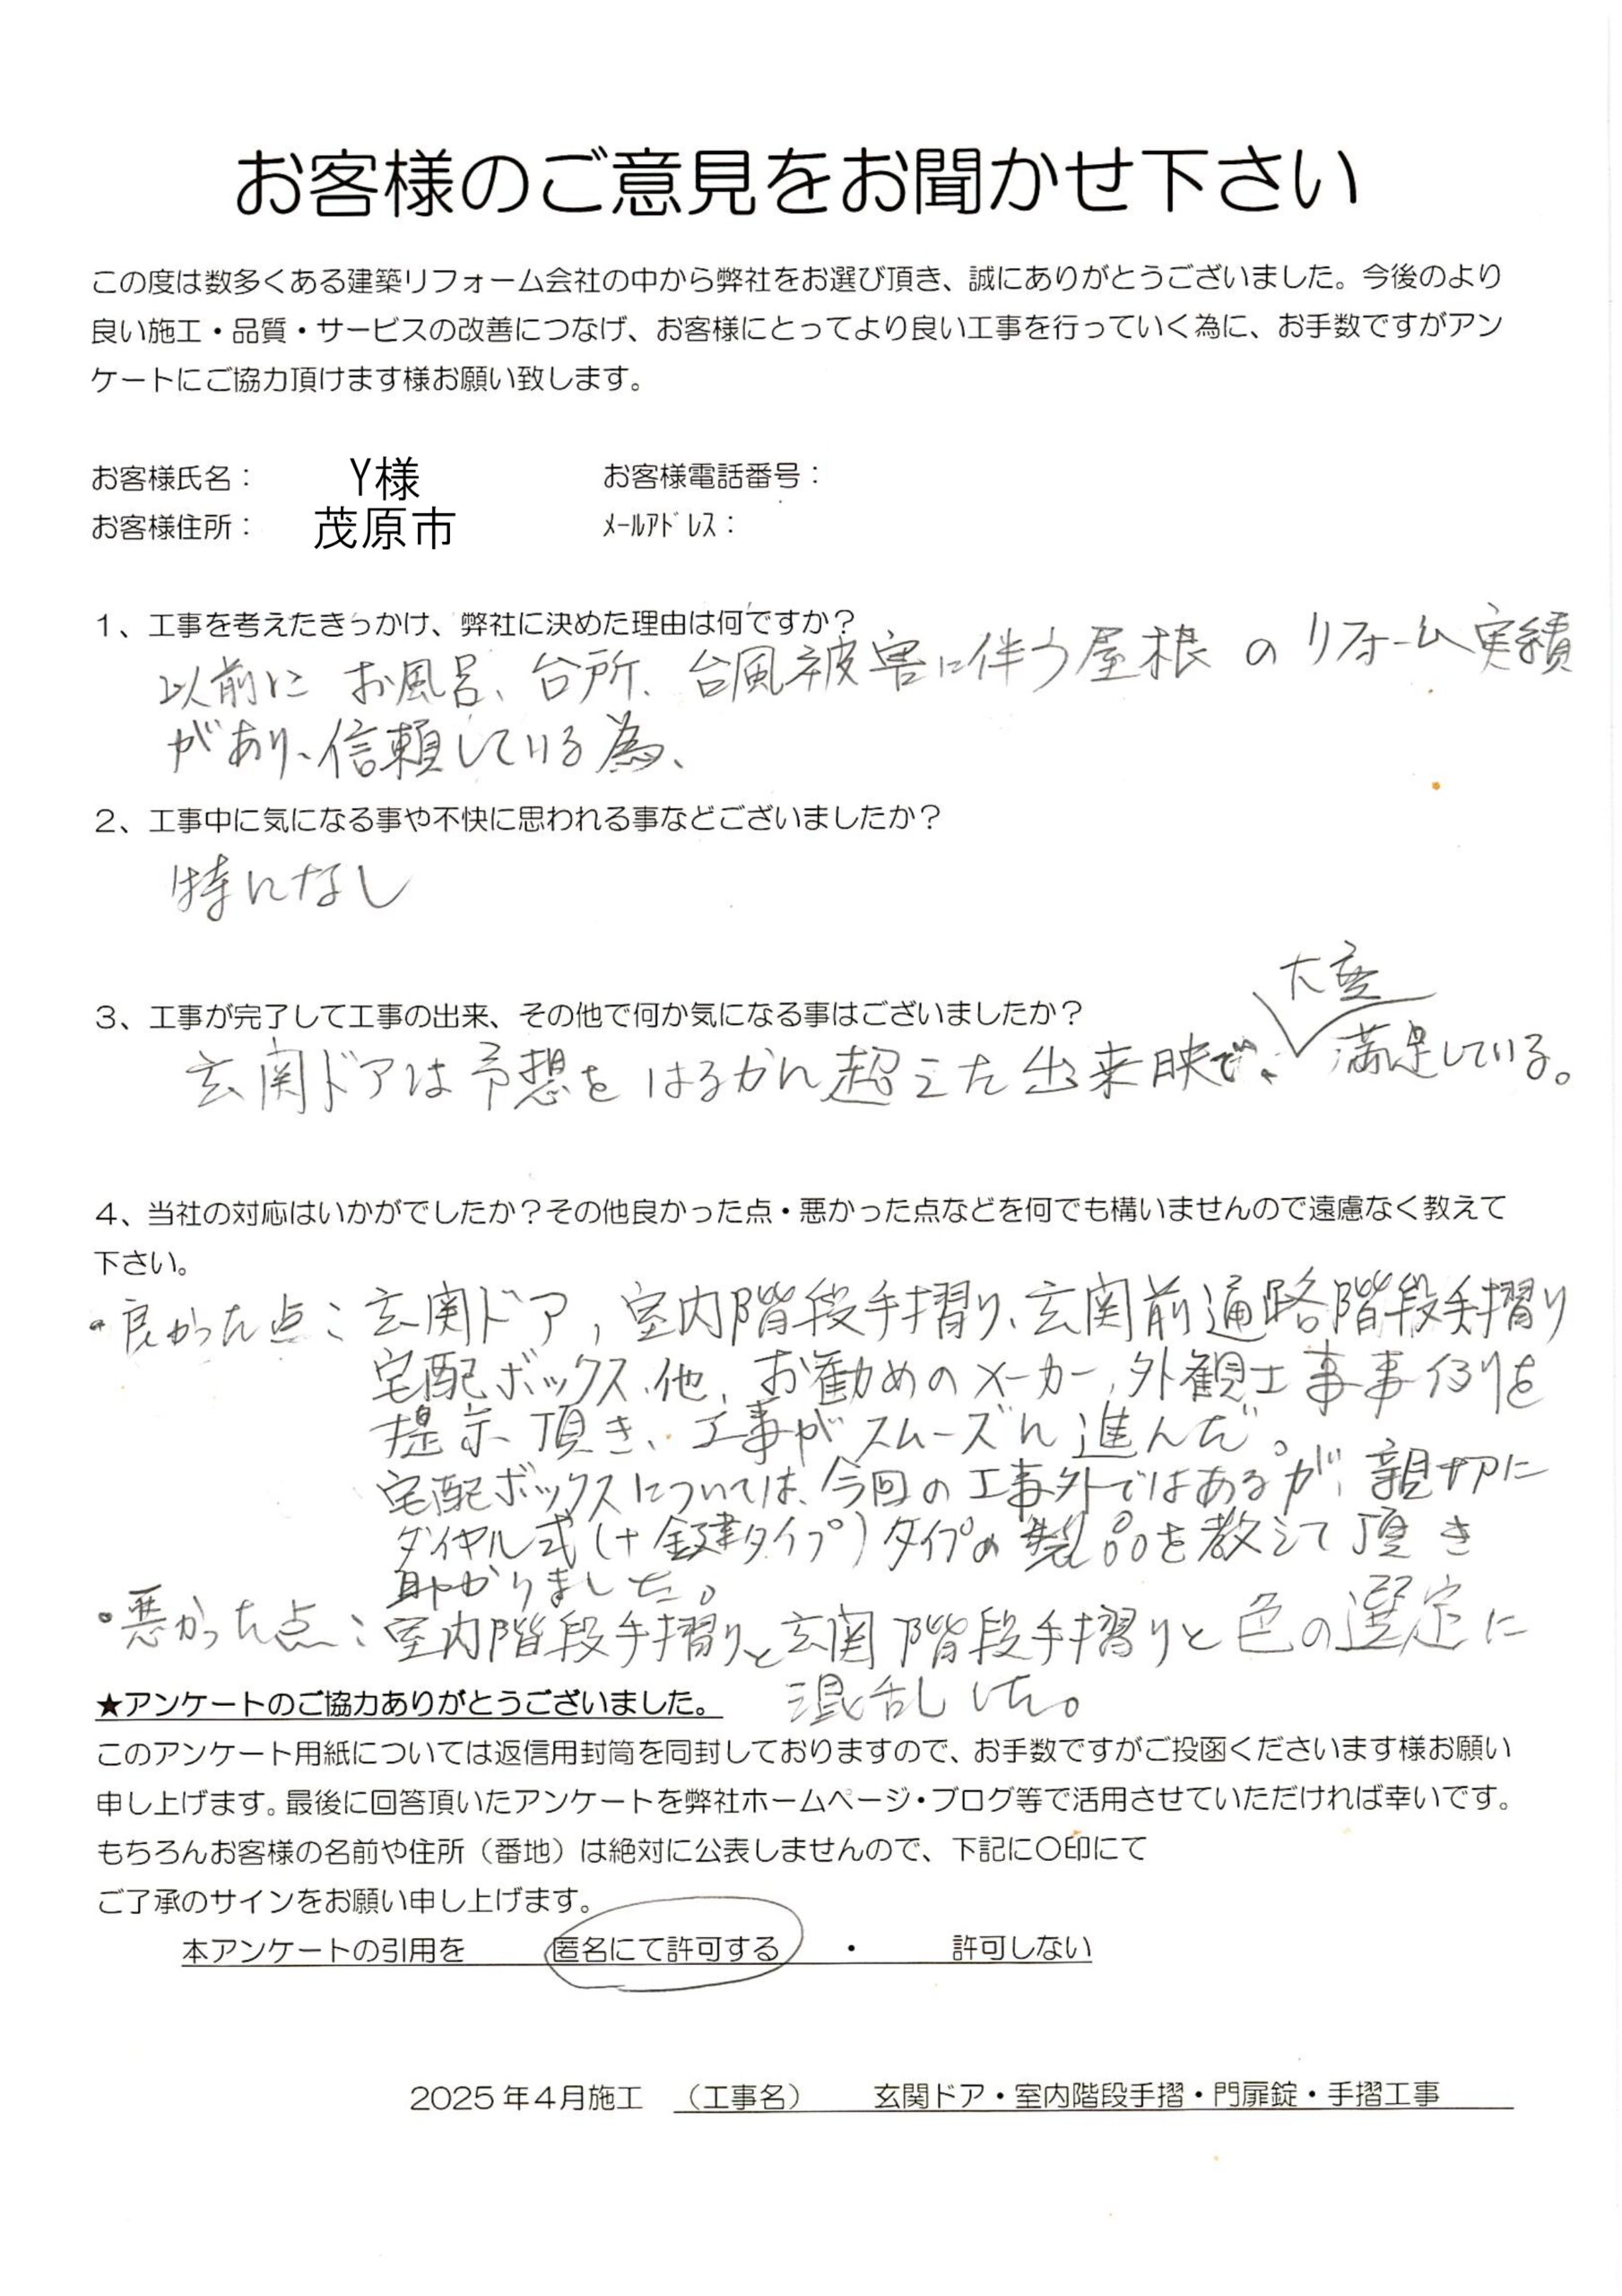 お客様のご意見をお聞かせ下さい
この度は数多くある建築リフォーム会社の中から弊社をお選び頂き、誠にありがとうございました。今後のより
良い施工・品質・サービスの改善につなげ、お客様にとってより良い工事を行っていく為に、お手数ですがアン
ケートにご協力頂けます様お願い致します。
お客様氏名： Y様 お客様電話番号：
お客様住所： 茂原市 ﾒｰﾙｱﾄﾞﾚｽ：
1、工事を考えたきっかけ、弊社に決めた理由は何ですか？
以前に お風呂、台所、台風被害に伴う屋根 の リフォーム実績
があり、信頼している為、
2、工事中に気になる事や不快に思われる事などございましたか？
特になし
3、工事が完了して工事の出来、その他で何か気になる事はございましたか？
玄関ドアは予想を はるかに超えた出来映で、大変満足している。
4、当社の対応はいかがでしたか？その他良かった点・悪かった点などを何でも構いませんので遠慮なく教えて
下さい。
・良かった点：玄関ドア，室内階段手摺り、玄関前通路階段手摺り
宅配ボックス、他、お勧めのメーカー，外観工事事例を
提示頂き、工事がスムーズに進んだ。
宅配ボックスについては、今回の工事外ではあるが、親切に
ダイヤル式（＋鍵タイプ）タイプの製品を教えて頂き
助かりました。
・悪かった点：室内階段手摺りと玄関階段手摺りと色の選定に
混乱した。
★アンケートのご協力ありがとうございました。
このアンケート用紙については返信用封筒を同封しておりますので、お手数ですがご投函くださいます様お願い
申し上げます。最後に回答頂いたアンケートを弊社ホームページ・ブログ等で活用させていただければ幸いです。
もちろんお客様の名前や住所（番地）は絶対に公表しませんので、下記に〇印にて
ご了承のサインをお願い申し上げます。
本アンケートの引用を 匿名にて許可する ・ 許可しない
2025年4月施工 （工事名） 玄関ドア・室内階段手摺・門扉錠・手摺工事